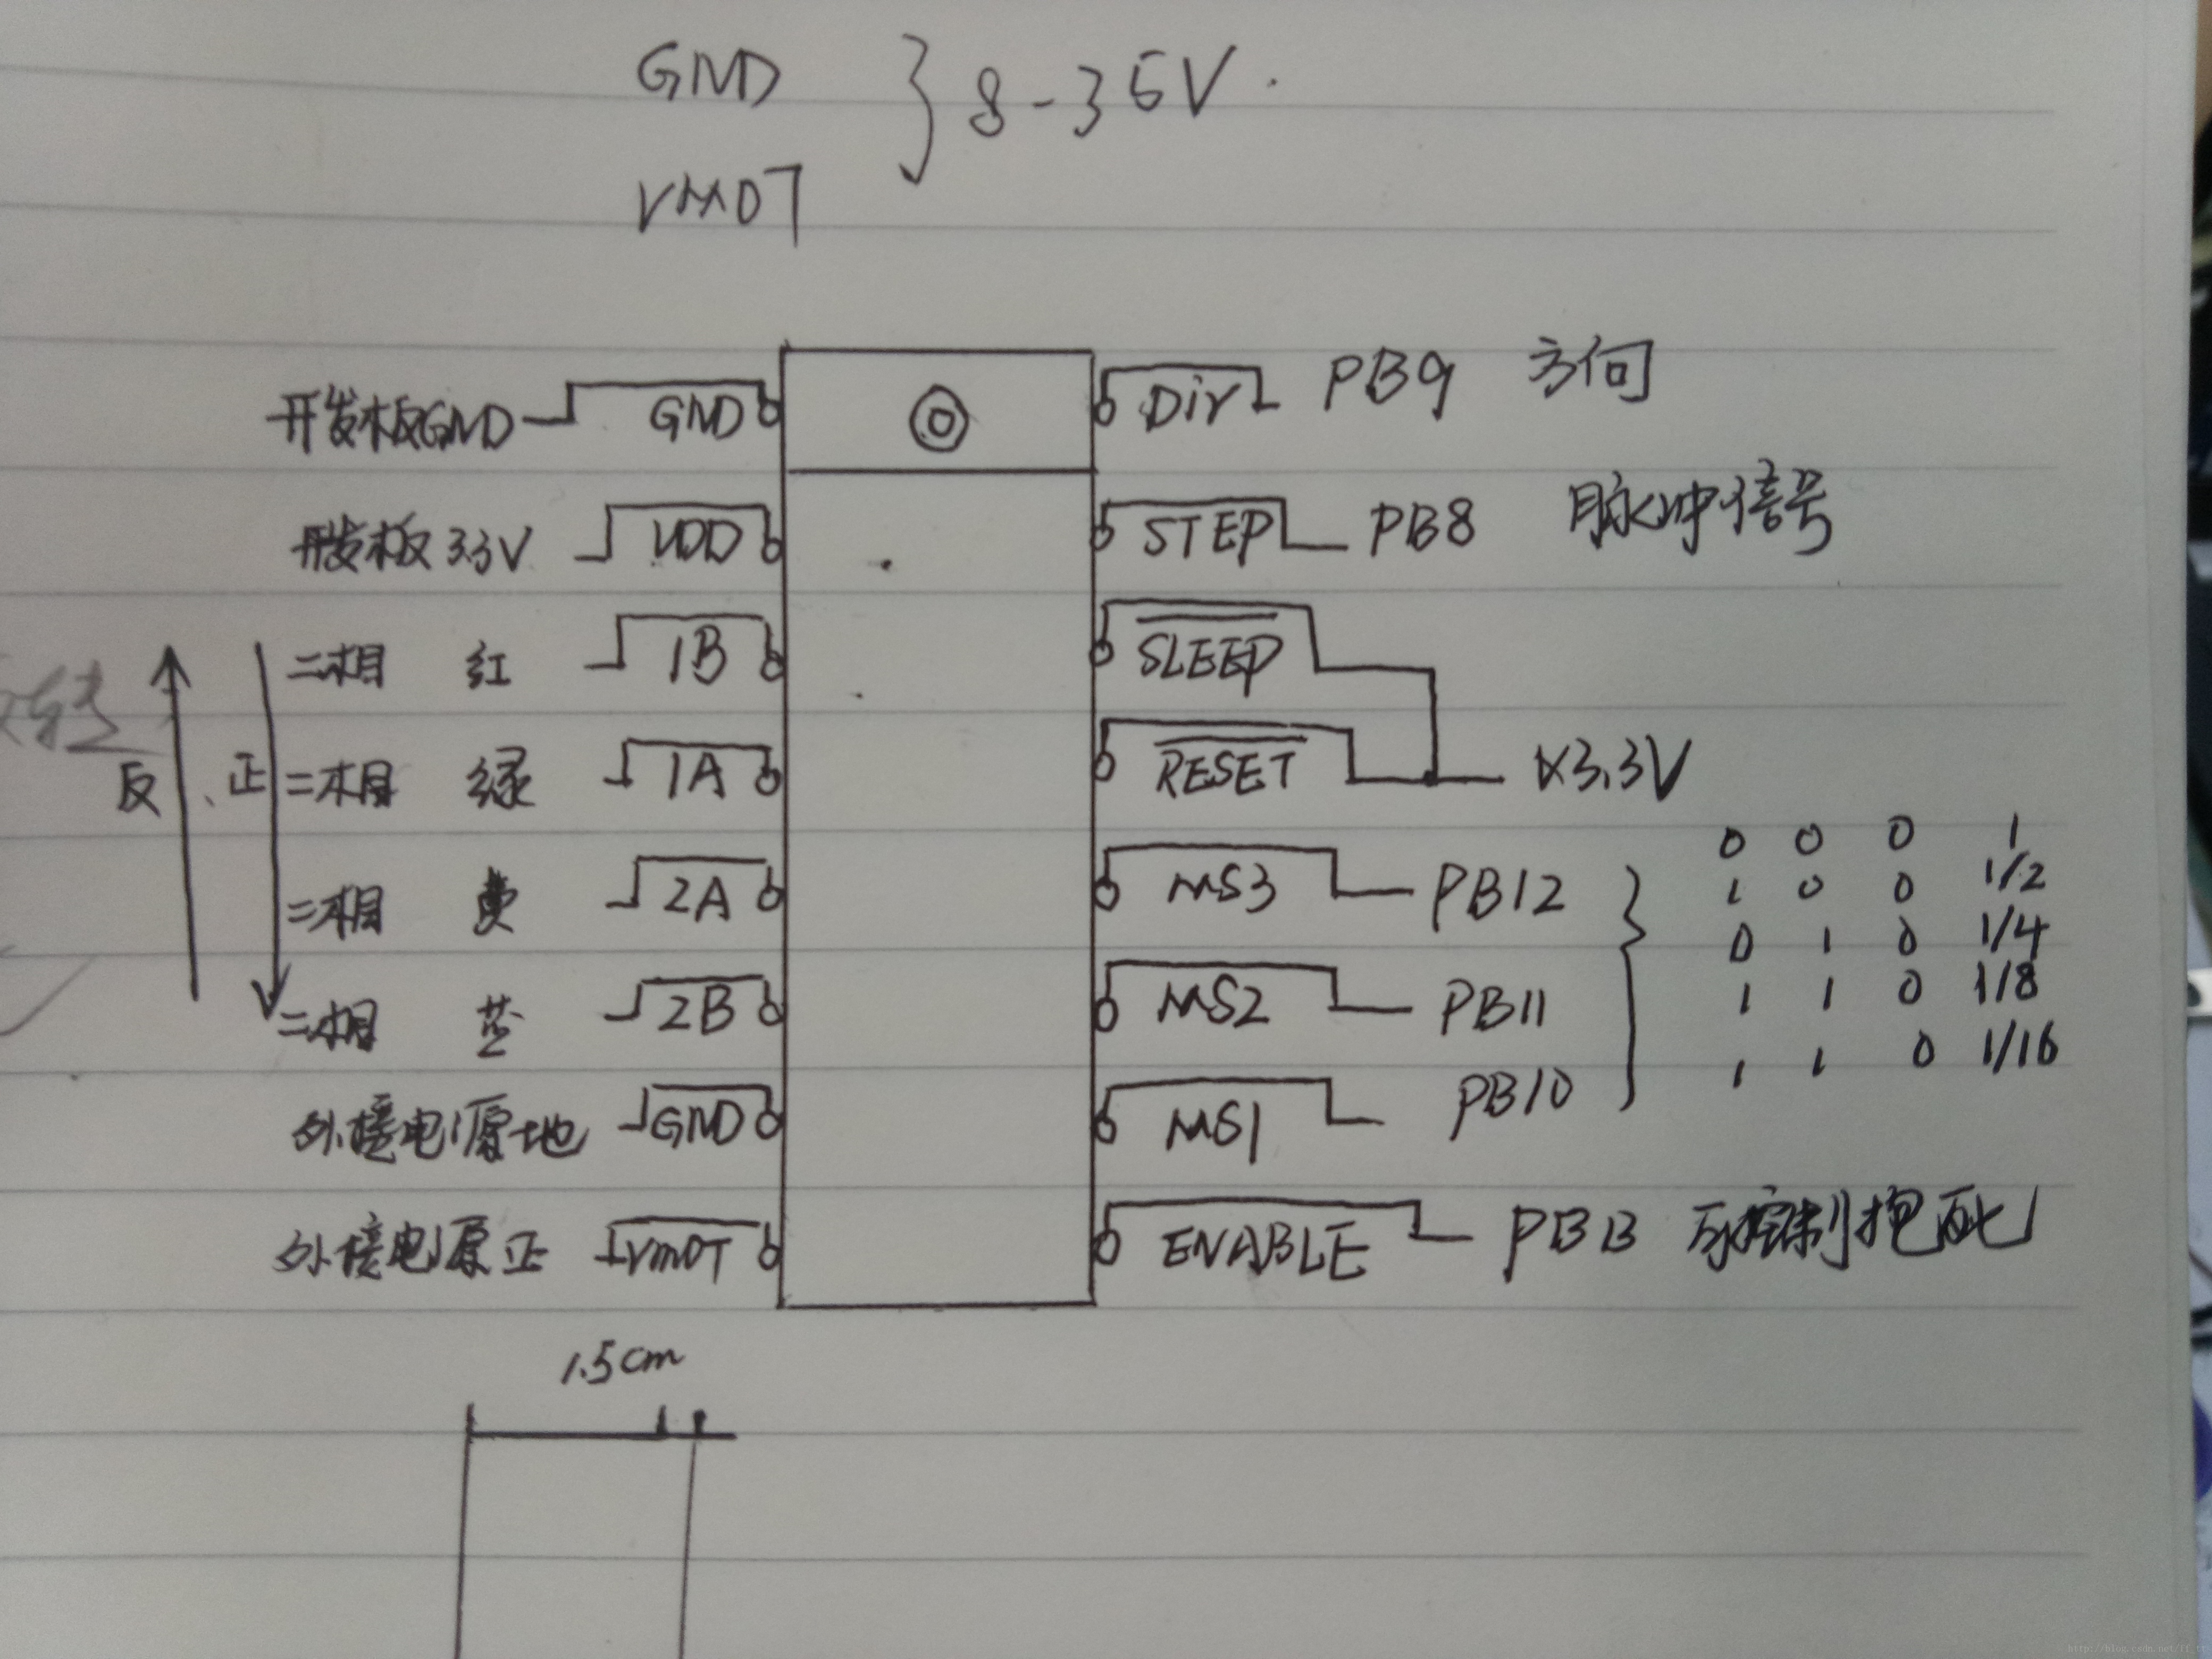 GND
8-35V
VMOT
开发板GND GND Dir PB9 方向
开发板 3.3V VDD STEP PB8 脉冲信号
二相 红 1B SLEEP
转
反 正 二相 绿 1A RESET 3.3V
0 0 0 1
1 0 0 1/2
二相 黄 2A MS3 PB12
0 1 0 1/4
1 1 0 1/8
二相 蓝 2B MS2 PB11
1 1 0 1/16
外接电源地 GND MS1 PB10
外接电源正 VMOT ENABLE 控制抱死
1.5cm